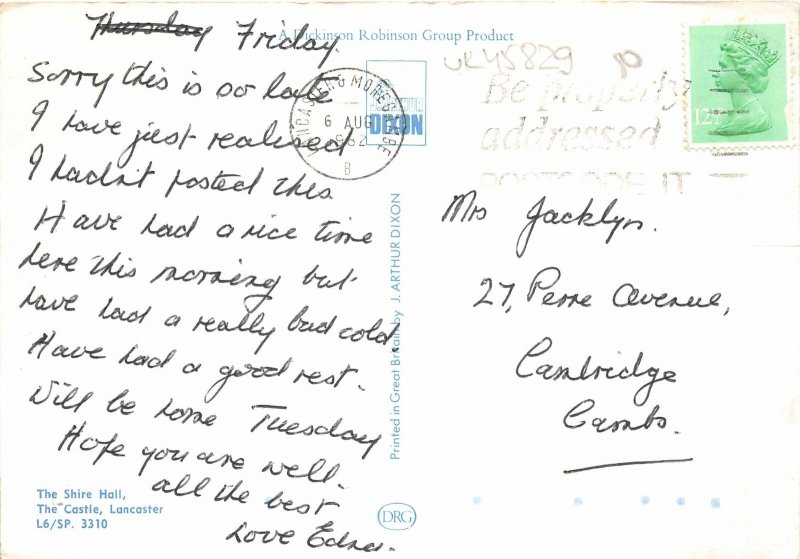 A Dickinson Robinson Group Product
Thursday Friday.
Sorry this is so late
I have just realised
I hadn't posted this.
Have had a nice time
here this morning but
have had a really bad cold.
Have had a good rest.
Will be home Tuesday
Hope you are well.
all the best
Love Edna.
The Shire Hall,
The Castle, Lancaster
L6/SP. 3310
Printed in Great Britain by J. ARTHUR DIXON
DRG
J ARTHUR
DIXON
LANCASTER & MORECAMBE
6 AUG
1982
B
UK45829
Be properly
addressed
POSTCODE IT
12½
Mrs Jacklyn.
27, Avenue,
Cambridge
Cambs.